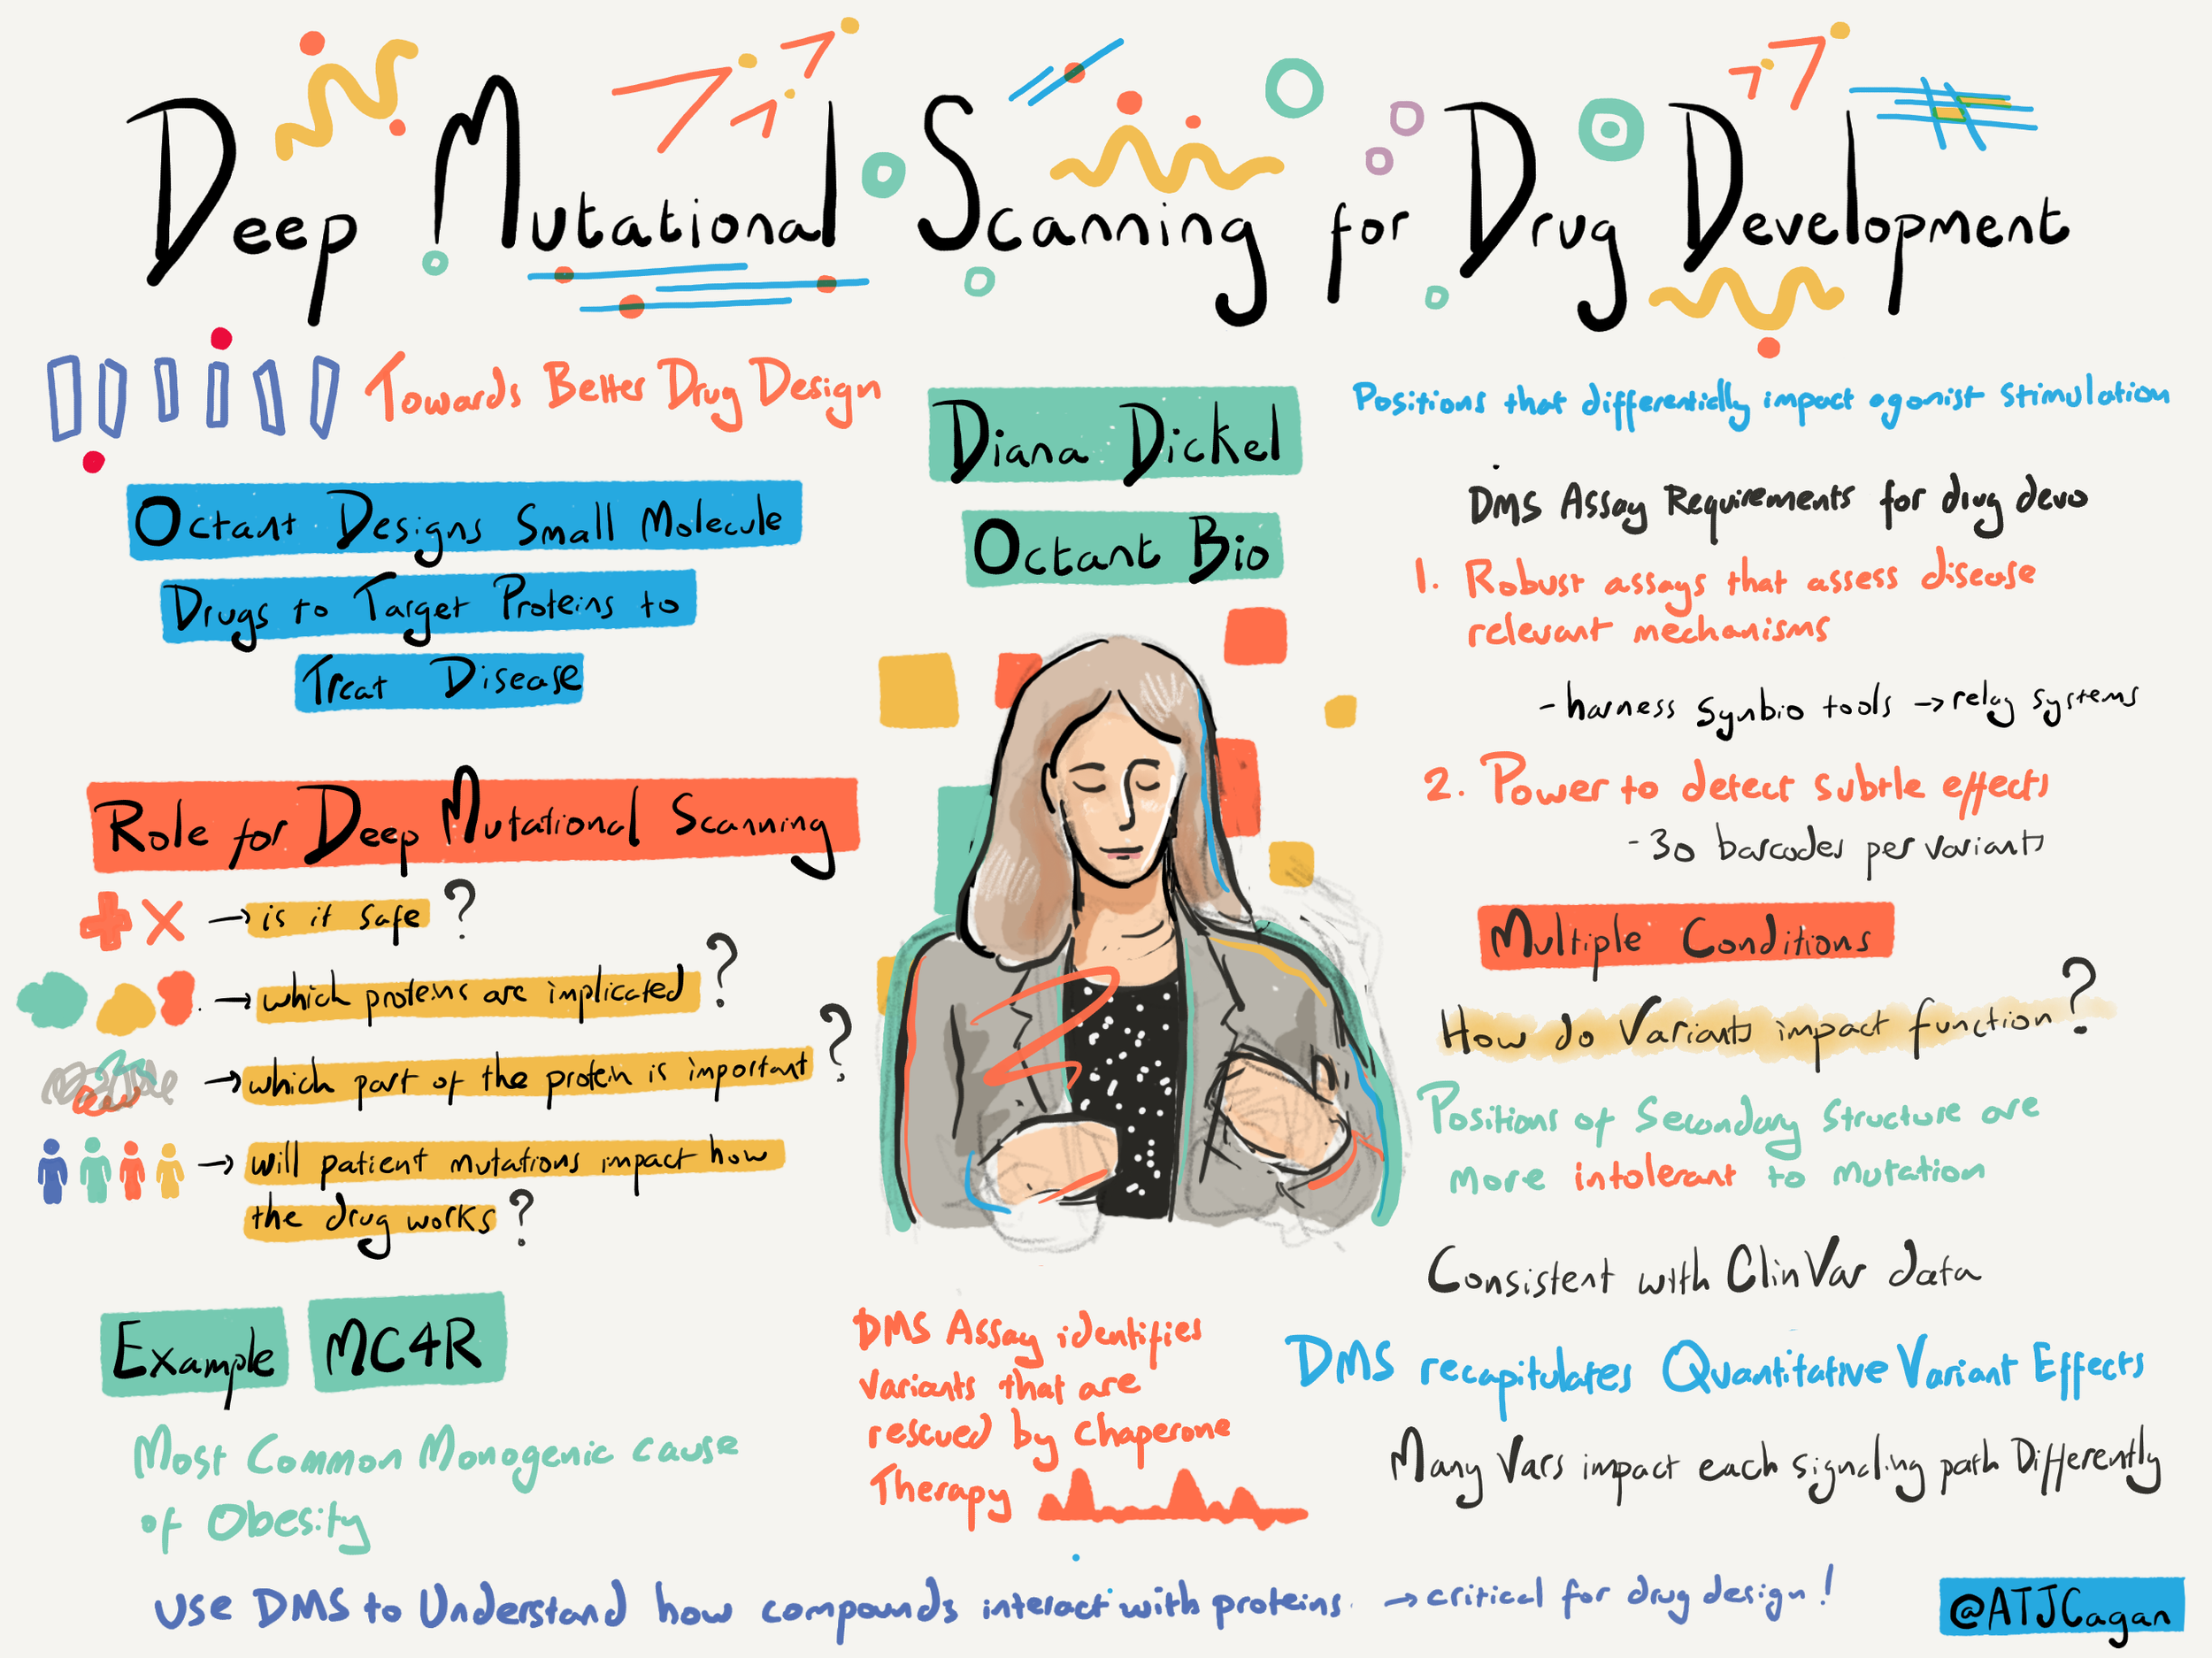 Deep Mutational Scanning for Drug Development
Towards Better Drug Design
Octant Designs Small Molecule
Drugs to Target Proteins to
Treat Disease
Role for Deep Mutational Scanning
→ is it safe ?
→ which proteins are implicated ?
→ which part of the protein is important ?
→ will patient mutations impact how
the drug works ?
Example MC4R
Most Common Monogenic cause
of Obesity
Diana Dickel
Octant Bio
DMS Assay identifies
variants that are
rescued by chaperone
Therapy
Positions that differentially impact agonist stimulation
DMS Assay Requirements for drug devo
1. Robust assays that assess disease
relevant mechanisms
- harness synbio tools → relay systems
2. Power to detect subtle effects
- 30 barcodes per variants
Multiple Conditions
How do Variants impact function ?
Positions of Secondary Structure are
more intolerant to mutation
Consistent with ClinVar data
DMS recapitulates Quantitative Variant Effects
Many Vars impact each signaling path Differently
use DMS to Understand how compounds interact with proteins. → critical for drug design !
@ATJCagan